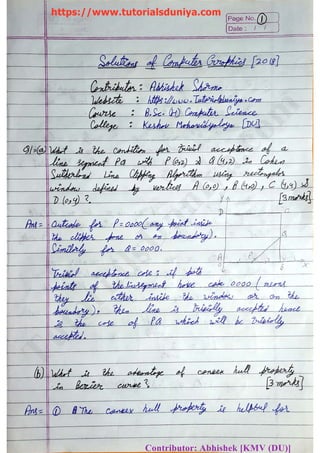 https://www.tutorialsduniya.com
Page No. 1
Date : / /
Solutions of Computer Graphics [2018]
Contributor : Abhishek Sharma
Website : https://www.TutorialsDuniya.com
Course : B.Sc. (H) Computer Science
College : Keshav Mahavidyalaya [DU]
Q1=(a) What is the condition for trivial acceptance of a
line segment PQ with P(0,2) & Q(4,2) in Cohen
Sutherland Line Clipping Algorithm using rectangular
window defined by vertices A(0,0), B(4,0), C(4,4) &
D(0,4)?. [3 marks].
Ans= Outcode for P=0000 (any point inside
the clipper pane or on boundary).
Similarly for Q=0000.
Trivial acceptance case: if both
points of the line segment have code 0000 (means
they lie either inside the window or on the
boundary). then line is trivially accepted hence
is the case of PQ which will be trivially
accepted.
Y
D
C
A
B
P
X
(b) What is the advantage of convex hull property
in Bezier curve? [3 marks]
Ans= ① The convex hull property is helpful for
Contributor: Abhishek [KMV (DU)]